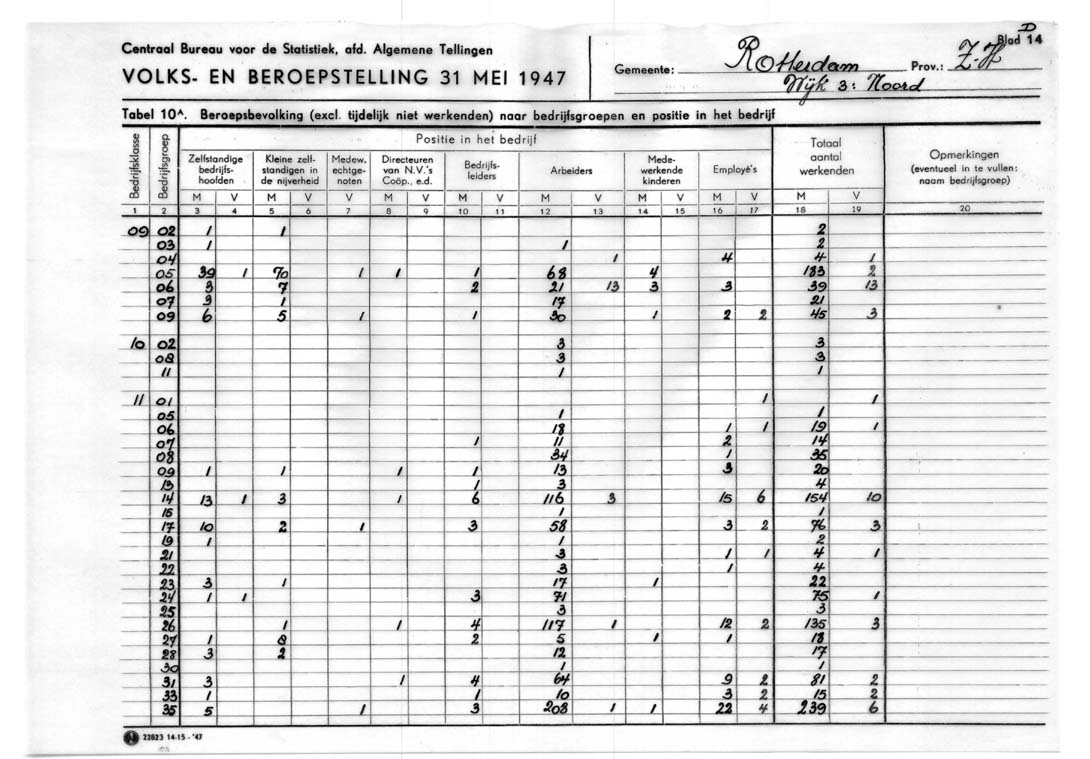 D
Centraal Bureau voor de Statistiek, afd. Algemene Tellingen
VOLKS- EN BEROEPSTELLING 31 MEI 1947
Gemeente: Rotterdam Prov.: Z-H Blad 14
Wijk 3: Noord
Tabel 10A. Beroepsbevolking (excl. tijdelijk niet werkenden) naar bedrijfsgroepen en positie in het bedrijf
Bedrijfsklasse Bedrijfsgroep Positie in het bedrijf Totaal aantal werkenden Opmerkingen (eventueel in te vullen: naam bedrijfsgroep)
Zelfstandige bedrijfshoofden Kleine zelfstandigen in de nijverheid Medew. echtgenoten Directeuren van N.V.'s Coöp., e.d. Bedrijfsleiders Arbeiders Medewerkende kinderen Employé's
M V M V V M V M V M V M V M V M V
1 2 3 4 5 6 7 8 9 10 11 12 13 14 15 16 17 18 19 20
09 02 1 1 2
03 1 1 2
04 1 4 4 1
05 39 1 70 1 1 1 68 4 183 2
06 3 7 2 21 13 3 3 39 13
07 3 1 17 21
09 6 5 1 1 30 1 2 2 45 3
10 02 3 3
08 3 3
11 1 1
11 01 1 1
05 1 1
06 18 1 1 19 1
07 1 11 2 14
08 34 1 35
09 1 1 1 1 13 3 20
13 1 3 4
14 13 1 3 1 6 116 3 15 6 154 10
15 1 1
17 10 2 1 3 58 3 2 76 3
19 1 1 2
21 3 1 1 4 1
22 3 1 4
23 3 1 17 1 22
24 1 1 3 71 75 1
25 3 3
26 1 1 4 117 1 12 2 135 3
27 1 8 2 5 1 1 18
28 3 2 12 17
30 1 1
31 3 1 4 64 9 2 81 2
33 1 1 10 3 2 15 2
35 5 1 3 208 1 1 22 4 239 6
N 22823 14-15 - '47